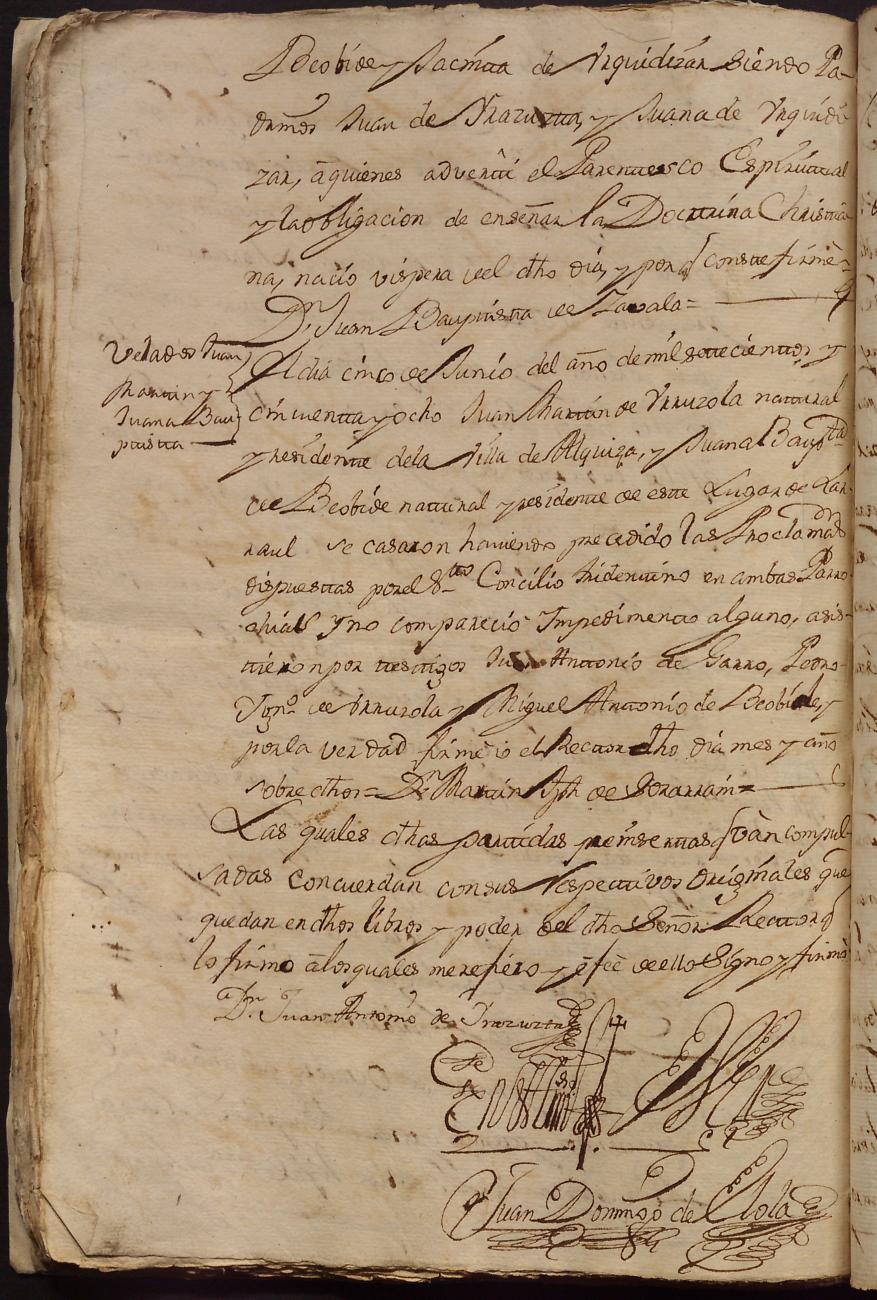 Beobide y Jacinta de Urquidizar siendo Pa-
drinos Juan de Yrazuzta, y Juana de Urquidi
zar, aquienes adverti el Parentesco Espiritual
y la obligacion de enseñar la Doctrina Christia
na, nacio vispera del dho dia, y por q conste firmè=
Dn Juan Baupttista de Zavala=
Velados Juan
Martin y
Juana Bau
ptista
El dia cinco de Junio del año de mil settecientos y
cincuenta y ocho Juan Martin de Urruzola natural
y residente dela Villa de Alquiza, y Juana Baptta
de Beobide natural y residente de este Lugar de Lar
raul se casaron haviendo precedido las Proclamas
dispuestas por el Stto Concilio tridentino en ambas Parro
chias y no compareciò Impedimento alguno, asis-
tieron por testigos Juan Antonio de Garro, Pedro
Ygno de Urruzola y Miguel Antonio de Beobide, y
por la verdad firmè io el Rector dho dia mes y año
sobre dhos= Dn Martin Jph de Gorarram=
Las quales dhas partidas preinsertas q vàn compul-
sadas concuerdan con sus respectivos originales que
quedan en dhos libros y poder del dho Señor Rector q
lo firmo a los quales me refiero y en feè de ello signo y firmè
Dn Juan Antonio de Yrazuzta
Juan Domingo de Elola